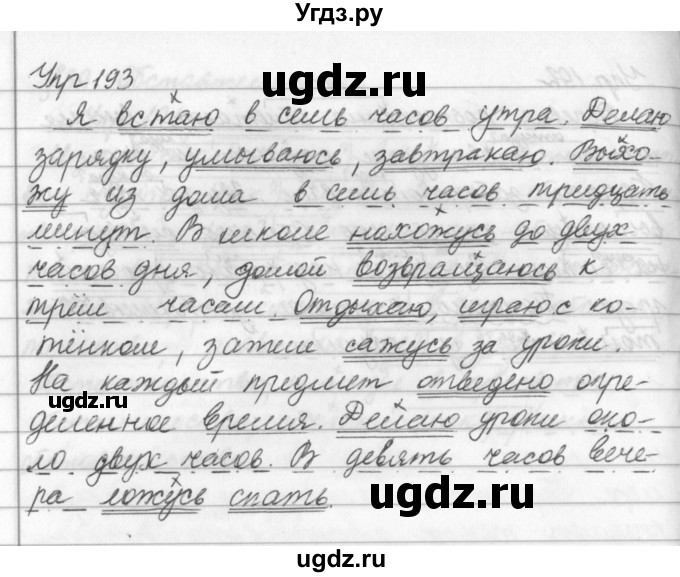 Угдз.ру
Упр 193
Я встаю в семь часов утра. Делаю
зарядку, умываюсь, завтракаю. Выхо-
жу из дома в семь часов тридцать
минут. В школе нахожусь до двух
часов дня, домой возвращаюсь к
трём часам. Отдыхаю, играю с ко-
тёнком, затем сажусь за уроки.
На каждый предмет отведено опре-
деленное время. Делаю уроки око-
ло двух часов. В девять часов вече-
ра ложусь спать.
ugdz.ru
ugdz.ru
ugdz.ru
ugdz.ru
ugdz.ru
ugdz.ru